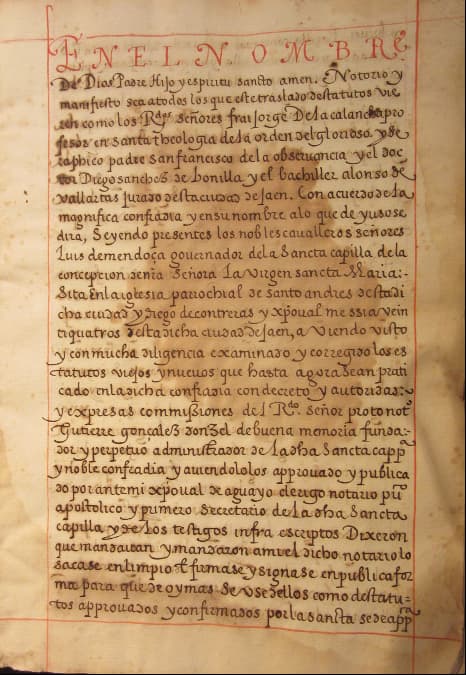 EN EL NOMBRE
De Dios Padre Hijo y espiritu sancto amen. Notorio y
manifiesto sea a todos los que este traslado destatutos vie
ren como los Rdos señores frai Jorge De la calancha pro
fesor en santa theologia de la orden del glorioso y se
raphico padre san francisco de la observancia y el doc
tor Diego sanchez de bonilla y el bachiller alonso de
vallartas jurado desta ciudad de Jaen. Con acuerdo de la
magnifica confradia y en su nombre a lo que de yuso se
dira, Seyendo presentes los nobles cavalleros señores
Luis de mendoça governador de la Sancta capilla de la
conception de nra Señora La virgen sancta Maria:-
Sita En la iglesia parrochial de santo andres desta di
cha ciudad y diego de contreras y xpoval me ssia vein
tiquatros desta dicha ciudad de Jaen, a viendo visto
y con mucha diligencia examinado y corregido los es
tatutos viejos y nuevos que hasta agora sean prati
cado en la dicha confradia con decreto y autoridad:
y expresas commissiones del Rdo. Señor protonot
Gutierre gonçalez donzel de buena memoria funda-
dor y perpetuo administrador de la dha Sancta capp
y noble confradia y aviendolos approvado y publica
do por ante mi xpoval de aguayo clerigo notario pu
apostolico y primero secretario de la dha Sancta
capilla y de los testigos infra escriptos Dixeron
que mandavan y mandaron a mi el dicho notario lo
sacase en limpio E firmase y signase en publica for
ma para que de oy mas se use dellos como destatu-
tos approvados y confirmados por la sancta sede app